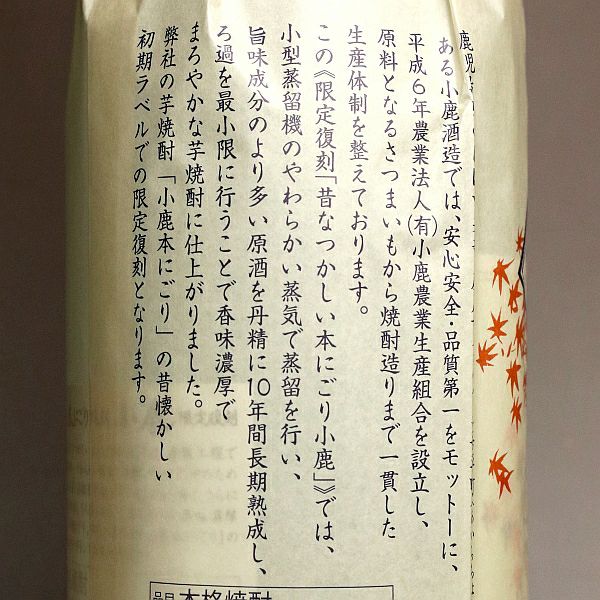 鹿児
ある小鹿酒造では、安心安全・品質第一をモットーに、
平成6年農業法人(有)小鹿農業生産組合を設立し、
原料となるさつまいもから焼酎造りまで一貫した
生産体制を整えております。
この《限定復刻「昔なつかしい本にごり小鹿」》では、
小型蒸留機のやわらかい蒸気で蒸留を行い、
旨味成分のより多い原酒を丹精に10年間長期熟成し、
ろ過を最小限に行うことで香味濃厚で
まろやかな芋焼酎に仕上がりました。
弊社の芋焼酎「小鹿本にごり」の昔懐かしい
初期ラベルでの限定復刻となります。
品目 本格焼酎